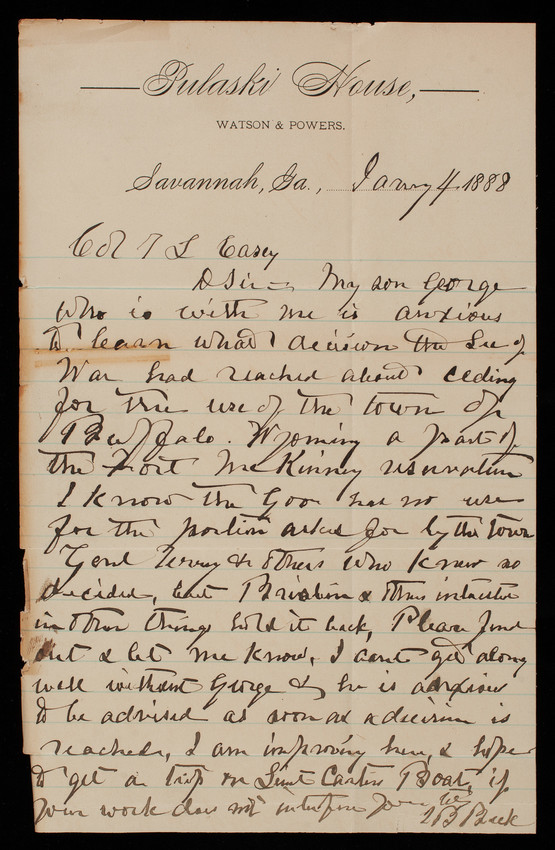 Pulaski House,
WATSON & POWERS.
Savannah, Ga., Jany 4 1888
Col T L Casey
D Sir - My son George
who is with me is anxious
to learn what decision the Sec of
War had reached about ceding
for the use of the town of
Buffalo. Wyoming a part of
the Fort McKinney reservation
I know the Gov has no use
for the portion asked for by the town
Genl Terry & others who knew so
decided, but Brisbin & others
in other things hold it back, Please find
out & let me know, I cant get along
well without George & he is anxious
to be advised as soon as a decision is
reached, I am improving here, & hope
to get a trip on Lieut Carters Boat, if
your work does not interfere